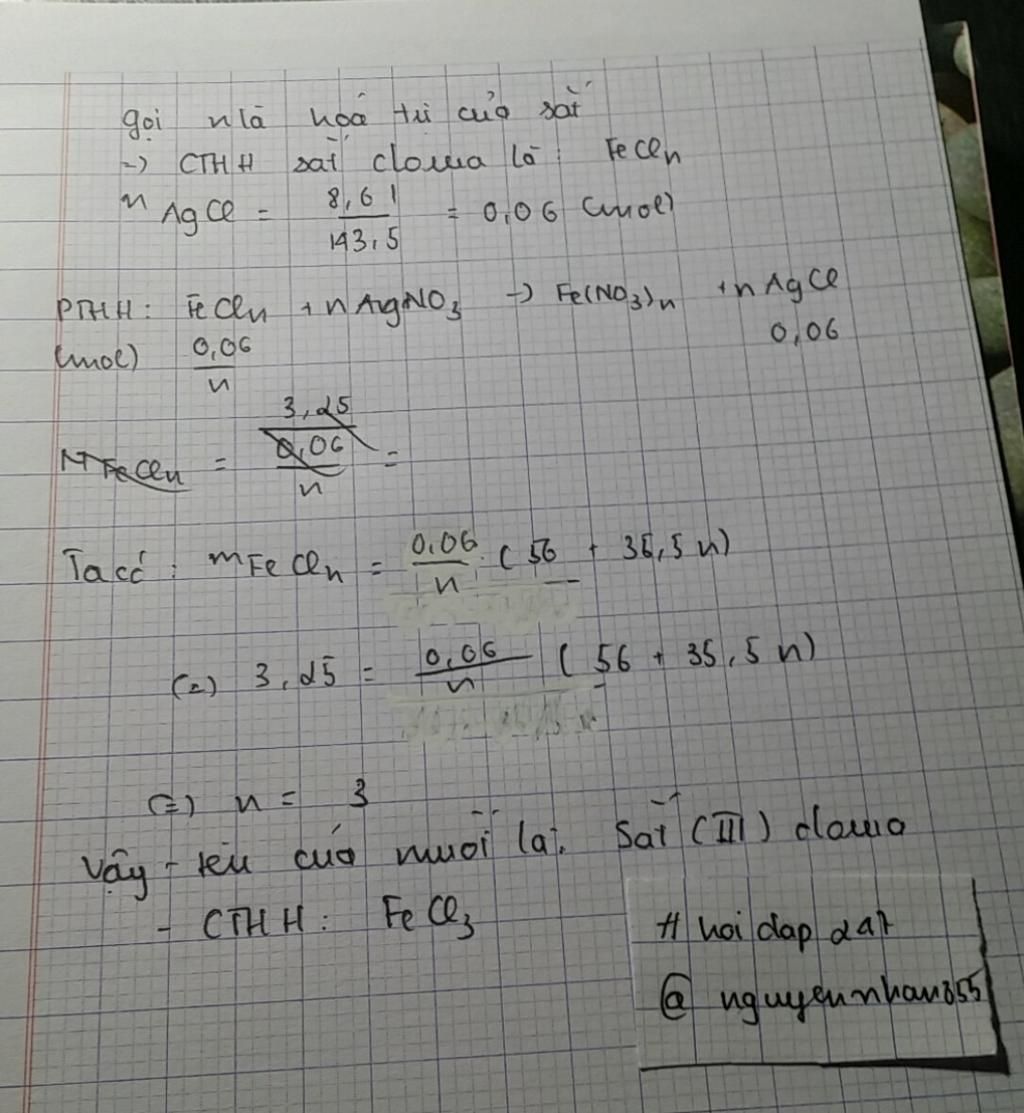 gọi n là hoá trị của sắt
=> CTHH sắt clorua là: FeCln
n AgCl = 8,61 / 143,5 = 0,06 (mol)
PTHH: FeCln + n AgNO3 -> Fe(NO3)n + n AgCl
(mol) 0,06 / n 0,06
MFeCln = 3,25 / 0,06 / n =
Ta có: mFeCln = 0,06 / n . (56 + 35,5 n)
(=) 3,25 = 0,06 / n (56 + 35,5 n)
(=) n = 3
Vậy - tên của muối là: Sắt (III) clorua
- CTHH: FeCl3
# hoi dap 247
@ nguyennhan355